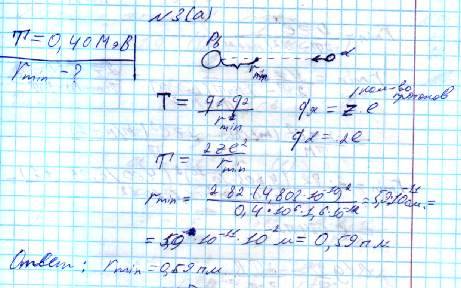 N3(а)
T = 0,40 МэВ
r min - ?
Pb r min α
T = q1 q2 / r min
кол-во протонов
qя = z·e
qα = 2e
T = 2ze² / r min
r min = 2·82·(4,802·10⁻¹⁰)² / 0,4·10⁶·1,6·10⁻¹² = 5,9·10⁻¹¹ см =
= 5,9·10⁻¹¹·10⁻² м = 0,59 пм
Ответ: r min = 0,59 пм